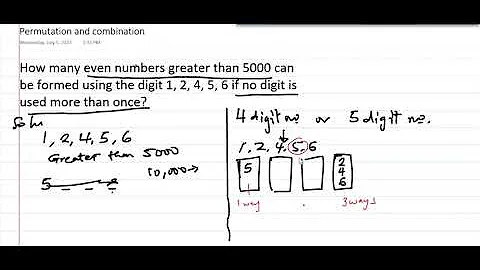 Permutation and combination
Wednesday, July 5, 2023
How many even numbers greater than 5000 can
be formed using the digit 1, 2, 4, 5, 6 if no digit is
used more than once?
Soln
1, 2, 4, 5, 6
Greater than 5000
10,000→
5
4 digit no. or 5 digit no.
1, 2, 4, 5, 6
5
2
4
6
1 way
3 ways